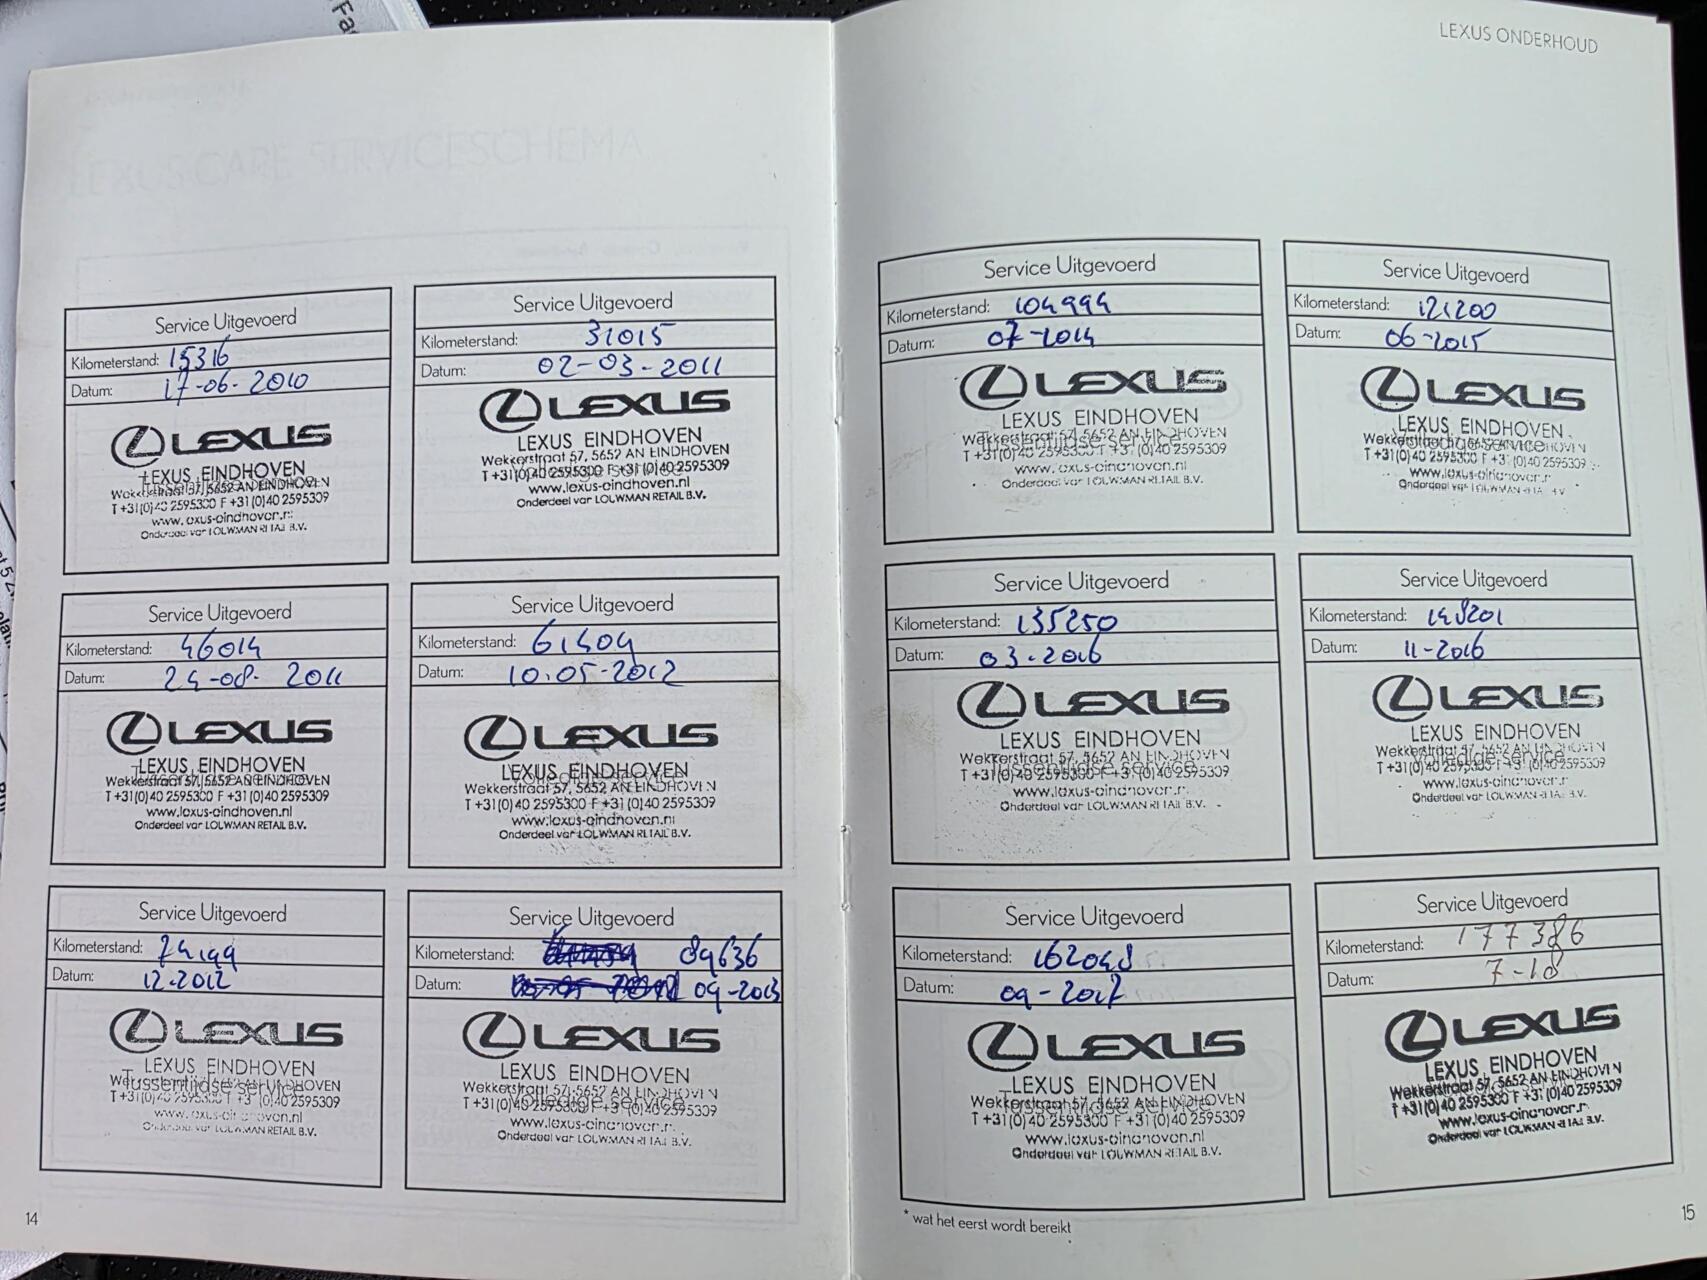 LEXUS CARE SERVICESCHEMA
Service Uitgevoerd
Kilometerstand: 15316
Datum: 17-06-2010
LEXUS
LEXUS EINDHOVEN
Tussentijdse service
Wekkerstraat 57, 5652 AN EINDHOVEN
T +31(0)40 2595300 F +31(0)40 2595309
www.lexus-eindhoven.nl
Onderdeel van LOUWMAN RETAIL B.V.
Service Uitgevoerd
Kilometerstand: 31015
Datum: 02-03-2011
LEXUS
LEXUS EINDHOVEN
Wekkerstraat 57, 5652 AN EINDHOVEN
Volledige service
T +31(0)40 2595300 F +31(0)40 2595309
www.lexus-eindhoven.nl
Onderdeel van LOUWMAN RETAIL B.V.
Service Uitgevoerd
Kilometerstand: 46014
Datum: 24-08-2011
LEXUS
LEXUS EINDHOVEN
Tussentijdse service
Wekkerstraat 57, 5652 AN EINDHOVEN
T +31(0)40 2595300 F +31(0)40 2595309
www.lexus-eindhoven.nl
Onderdeel van LOUWMAN RETAIL B.V.
Service Uitgevoerd
Kilometerstand: 61404
Datum: 10.05-2012
LEXUS
LEXUS EINDHOVEN
Volledige service
Wekkerstraat 57, 5652 AN EINDHOVEN
T +31(0)40 2595300 F +31(0)40 2595309
www.lexus-eindhoven.nl
Onderdeel van LOUWMAN RETAIL B.V.
Service Uitgevoerd
Kilometerstand: 74199
Datum: 12-2012
LEXUS
LEXUS EINDHOVEN
Tussentijdse service
Wekkerstraat 57, 5652 AN EINDHOVEN
T +31(0)40 2595300 F +31(0)40 2595309
www.lexus-eindhoven.nl
Onderdeel van LOUWMAN RETAIL B.V.
Service Uitgevoerd
Kilometerstand: 89636
Datum: 09-2013
LEXUS
LEXUS EINDHOVEN
Wekkerstraat 57, 5652 AN EINDHOVEN
Volledige service
T +31(0)40 2595300 F +31(0)40 2595309
www.lexus-eindhoven.nl
Onderdeel van LOUWMAN RETAIL B.V.
14
LEXUS ONDERHOUD
Service Uitgevoerd
Kilometerstand: 104994
Datum: 07-2014
LEXUS
LEXUS EINDHOVEN
Wekkerstraat 57, 5652 AN EINDHOVEN
Tussentijdse service
T +31(0)40 2595300 F +31(0)40 2595309
www.lexus-eindhoven.nl
Onderdeel van LOUWMAN RETAIL B.V.
Service Uitgevoerd
Kilometerstand: 121200
Datum: 06-2015
LEXUS
LEXUS EINDHOVEN
Wekkerstraat 57, 5652 AN EINDHOVEN
Volledige service
T +31(0)40 2595300 F +31(0)40 2595309
www.lexus-eindhoven.nl
Onderdeel van LOUWMAN RETAIL B.V.
Service Uitgevoerd
Kilometerstand: 135250
Datum: 03-2016
LEXUS
LEXUS EINDHOVEN
Wekkerstraat 57, 5652 AN EINDHOVEN
Tussentijdse service
T +31(0)40 2595300 F +31(0)40 2595309
www.lexus-eindhoven.nl
Onderdeel van LOUWMAN RETAIL B.V.
Service Uitgevoerd
Kilometerstand: 148201
Datum: 11-2016
LEXUS
LEXUS EINDHOVEN
Wekkerstraat 57, 5652 AN EINDHOVEN
Volledige service
T +31(0)40 2595300 F +31(0)40 2595309
www.lexus-eindhoven.nl
Onderdeel van LOUWMAN RETAIL B.V.
Service Uitgevoerd
Kilometerstand: 162048
Datum: 09-2017
LEXUS
LEXUS EINDHOVEN
Wekkerstraat 57, 5652 AN EINDHOVEN
Tussentijdse service
T +31(0)40 2595300 F +31(0)40 2595309
www.lexus-eindhoven.nl
Onderdeel van LOUWMAN RETAIL B.V.
Service Uitgevoerd
Kilometerstand: 177386
Datum: 7-18
LEXUS
LEXUS EINDHOVEN
Wekkerstraat 57, 5652 AN EINDHOVEN
T +31(0)40 2595300 F +31(0)40 2595309
www.lexus-eindhoven.nl
Onderdeel van LOUWMAN RETAIL B.V.
* wat het eerst wordt bereikt
15